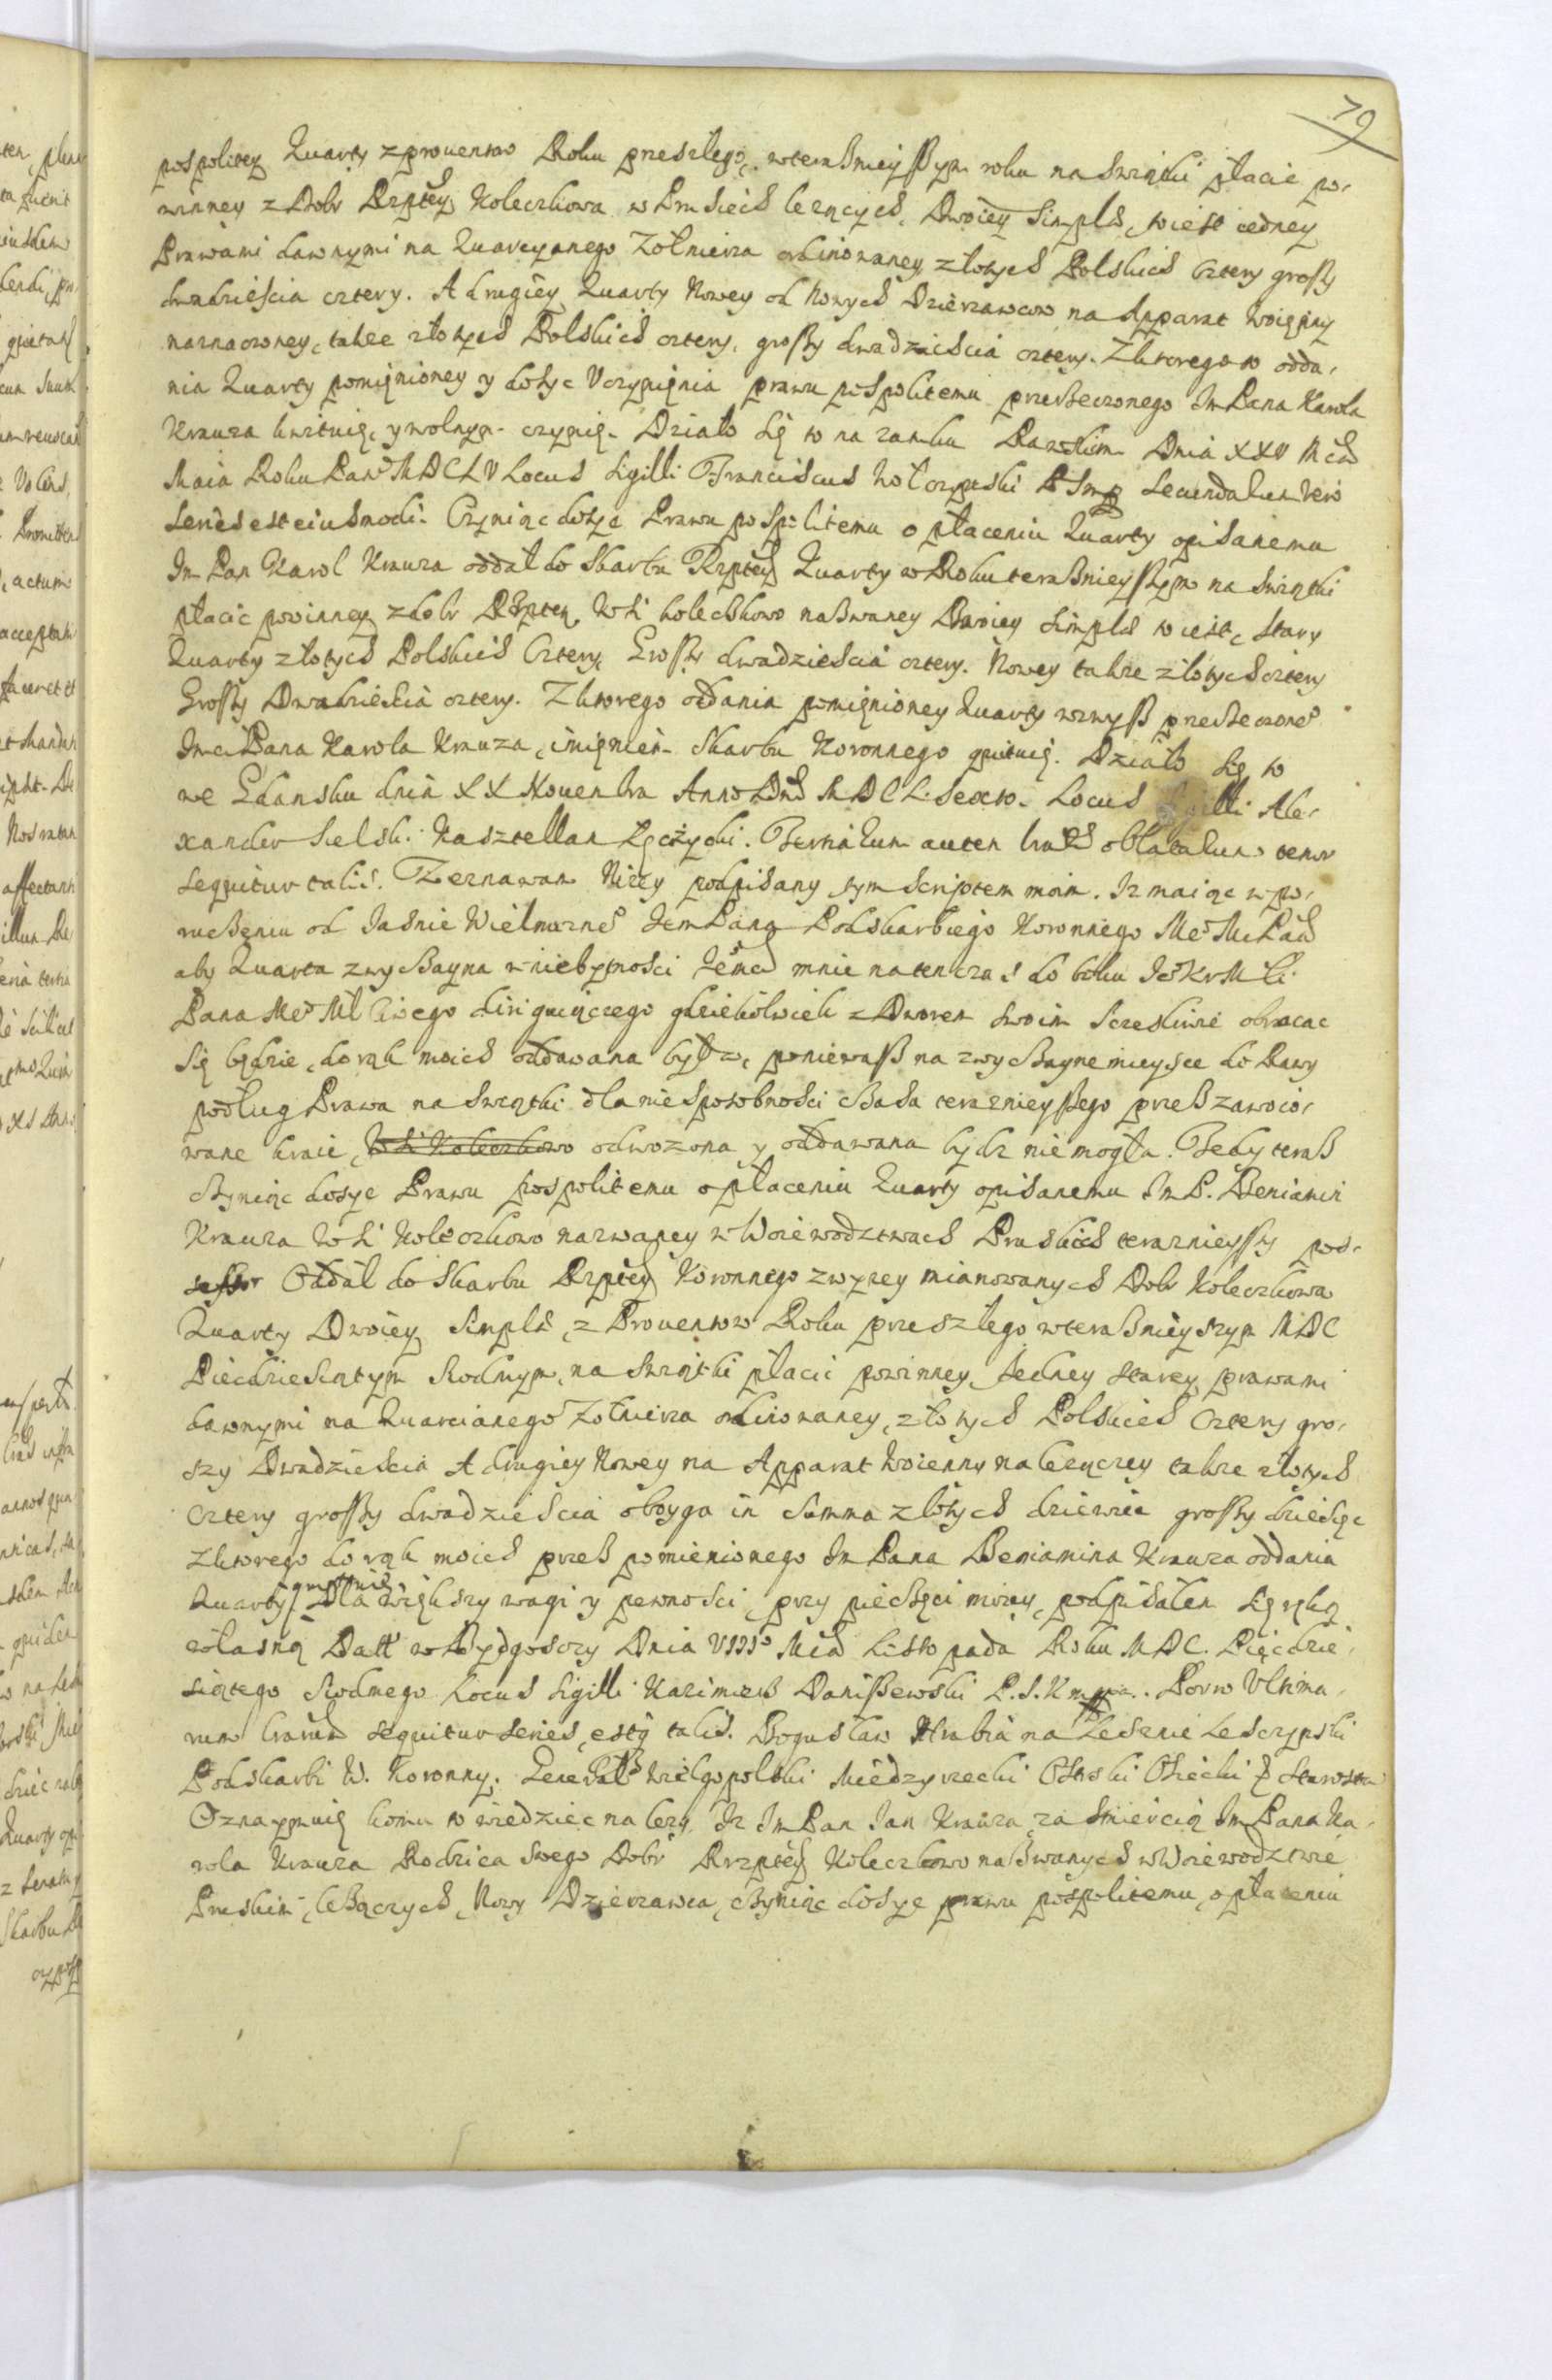 79
pospolitey Quarty z prouentow Roku przeszlego, wteraßnieyßym roku na Swiątki płacić po-
winney z Dobr Rzptey Koleczkowa w Prusiech leżących, Dwoiey Simpls, to iest iedney
Prawami dawnymi na Quarcyanego Żołnierza ordinowaney złotych Polskich Cztery groszy
dwadzieścia cztery. A drugiey Quarty Nowey od Nowych Dzierzawcow na Apparat woięnny
naznaczoney, także złotych Polskich cztery, groszy dwadzieścia cztery. Z ktorego to odda-
nia Quarty pomięnioney y dosyc Uczynięnia prawu pospolitemu przerzeczonego Im Pana Karola
Krauza kwituię, y wolnym czynię. Działo się to na zamku Rawskim Dnia XXV Mca
Maia Roku Pan MDCLV Locus Sigilli Franciscus Secundarum vero
series est eiusmodi. Czyniąc dosyc Prawu pospolitemu o płaceniu Quarty opisanemu
Im Pan Karol Krauza oddał do Skarbu Rzptey Quarty w Roku teraßnieyßym na Swiątki
płacic powinney z dobr Rzptey, Wsi Koleczkowo naßwaney Dwoiey Simpls to iest, Stary
Quarty złotych Polskich Cztery, Groszy dwadzieścia cztery. Nowey takze złotych cztery
Groszy Dwadzieścia cztery. Z ktorego oddania pomięnioney Quarty wzwyß przerzeczone°
Imci Pana Karola Krauza, imięniem Skarbu Koronnego quituię. Działo się to
we Gdansku dnia XX Nouembra Anno Dni MDCL Sexto. Locus Sigilli Ale-
xander Sielsk. Kasztellan Łęczycki. Tertiarum autem oblatarum tenor
sequitur talis. Zeznawam Niżey podpisany tym Scriptem moim. Iz maiąc w po-
ruczeniu od Jasnie Wielmożne° Jem Pana Podskarbiego Koronnego Me° M Pana
aby Quarta zwyczayna w niebytności Jemci mnie na ten czas do boku Je° Kr Mci
Pana Me° Mł ciwego gdziekolwiek z Dworem swoim Szczesliwie obracac
się będzie, do rąk moich oddawana była, poniewaß na zwyczayne mieysce do Rawy
podług Prawa na Swiątki dla niesposobności czasu terazniejßego przeß zawoio-
wane kraie, Wsi Koleczkowo odwożona y oddawana bydz nie mogła. Tedy teraß
czyniąc dosyc Prawu pospolitemu o płaceniu Quarty opisanemu Im P. Beniamin
Krauza Wsi Koleczkowo nazwaney w Woiewodztwach Pruskich teraznieyszy pos-
sessor Oddał do Skarbu Rzptey Koronnego z wyzey mianowanych Dobr Koleczkowa
Quarty Dwoiey Simpls, z Prouentow Roku przeszłego w teraßnieyszym MDC
Piecdziesiątym Siodmym, na Swiątki płacic powinney, Jedney starey prawami
dawnymi na Quarcianego Żołnierza ordinowaney, złotych Polskich Cztery gro-
szy Dwadziescia A drugiey Nowey na Apparat Woienny nalezączey takze złotych
cztery groszy dwadziescia oboyga in Summa złotych dziewiec groszy dziesięc
Z ktorego do rąk moich przeß pomienionego Im Pana Beniamina Krauza oddania
Quarty quituię Dla większy wagi y pewności, przy pieczęci moiey, podpisałem się ręką
własną Datt w Bydgoszczy Dnia VIII° Mca Listopada Roku MDC. Pięcdzie-
siątego Siodmego Locus Sigilli Kazimierß Danißewski P. S. K mppa. Porro Ultima-
rum sequitur series, estq talis. Bogusław Hrabia na Lesznie Lesczynski
Podskarbi W. Koronny. Generał Wielgopolski Miedzyrzecki Osiecki Starosta
Oznaymuię komu to wiedziec nalezy, Iz Im Pan Jan Krauza, za smiercią Im Pana Ka-
rola Krauza Rodzica swego Dobr Rzptey Koleczkowo naßwanych w Woiewodztwie
Pruskim, leßączych, Nowy Dzierzawca, czyniąc dosyc prawu pospolitemu, o płaceniu